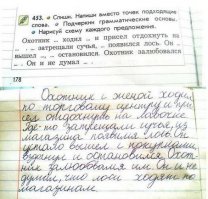 453. Спиши. Напиши вместо точек подходящие
слова. Подчеркни грамматические основы.
Нарисуй схему каждого предложения.
Охотник ... ходил ... и присел отдохнуть на
... ... затрещали сучья, ... появился лось. Он ...
вышел ... остановился. Охотник залюбовался
... Он и не думал ... .
178
Охотник с женой ходил
по торговому центру и при
сел отдохнуть на лавочке
Где-то затрещали сучья, из
магазина появился лось. Он
устало вышел с покупками
вздохнул и остановился. Охот
ник залюбовался им. Он и не
думал, что лоси ходят по
магазинам.